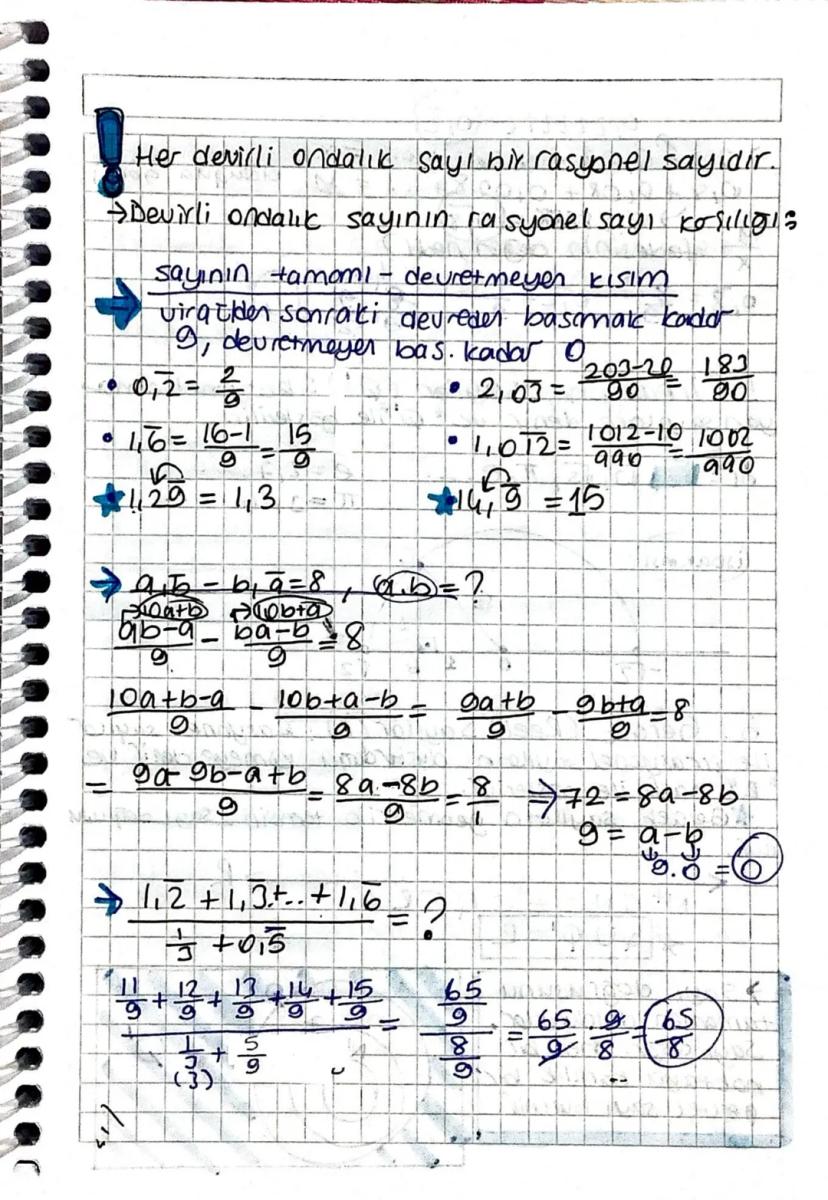 ! Her devirli ondalık sayı bir rasyonel sayıdır.
→Devirli ondalık sayının rasyonel sayı karşılığı:
→ sayının tamamı - devretmeyen kısım
virgülden sonraki devreden basamak kadar
9, devretmeyen bas. kadar 0
• 0,2̅ = 2/9
• 2,03̅ = 203-20/90 = 183/90
• 1,6̅ = 16-1/9 = 15/9
• 1,01̅2̅ = 1012-10/990 = 1002/990
★ 1,29̅ = 1,3
★ 14,9̅ = 15
→ a,b̅ - b,a̅ = 8 , a.b = ?
→10a+b →10b+a
ab-a/9 - ba-b/9 = 8
10a+b-a/9 - 10b+a-b/9 = 9a+b/9 - 9b+a/9 = 8
= 9a-9b-a+b/9 = 8a-8b/9 = 8/1 ⇒ 72 = 8a-8b
9 = a-b
9.0 = 0
→ 1,2̅ + 1,3̅+..+1,6̅ / 1/3 + 0,5̅ = ?
11/9 + 12/9 + 13/9 + 14/9 + 15/9 / 1/3 + 5/9 = 65/9 / 8/9 = 65/9 . 9/8 = 65/8
(3)